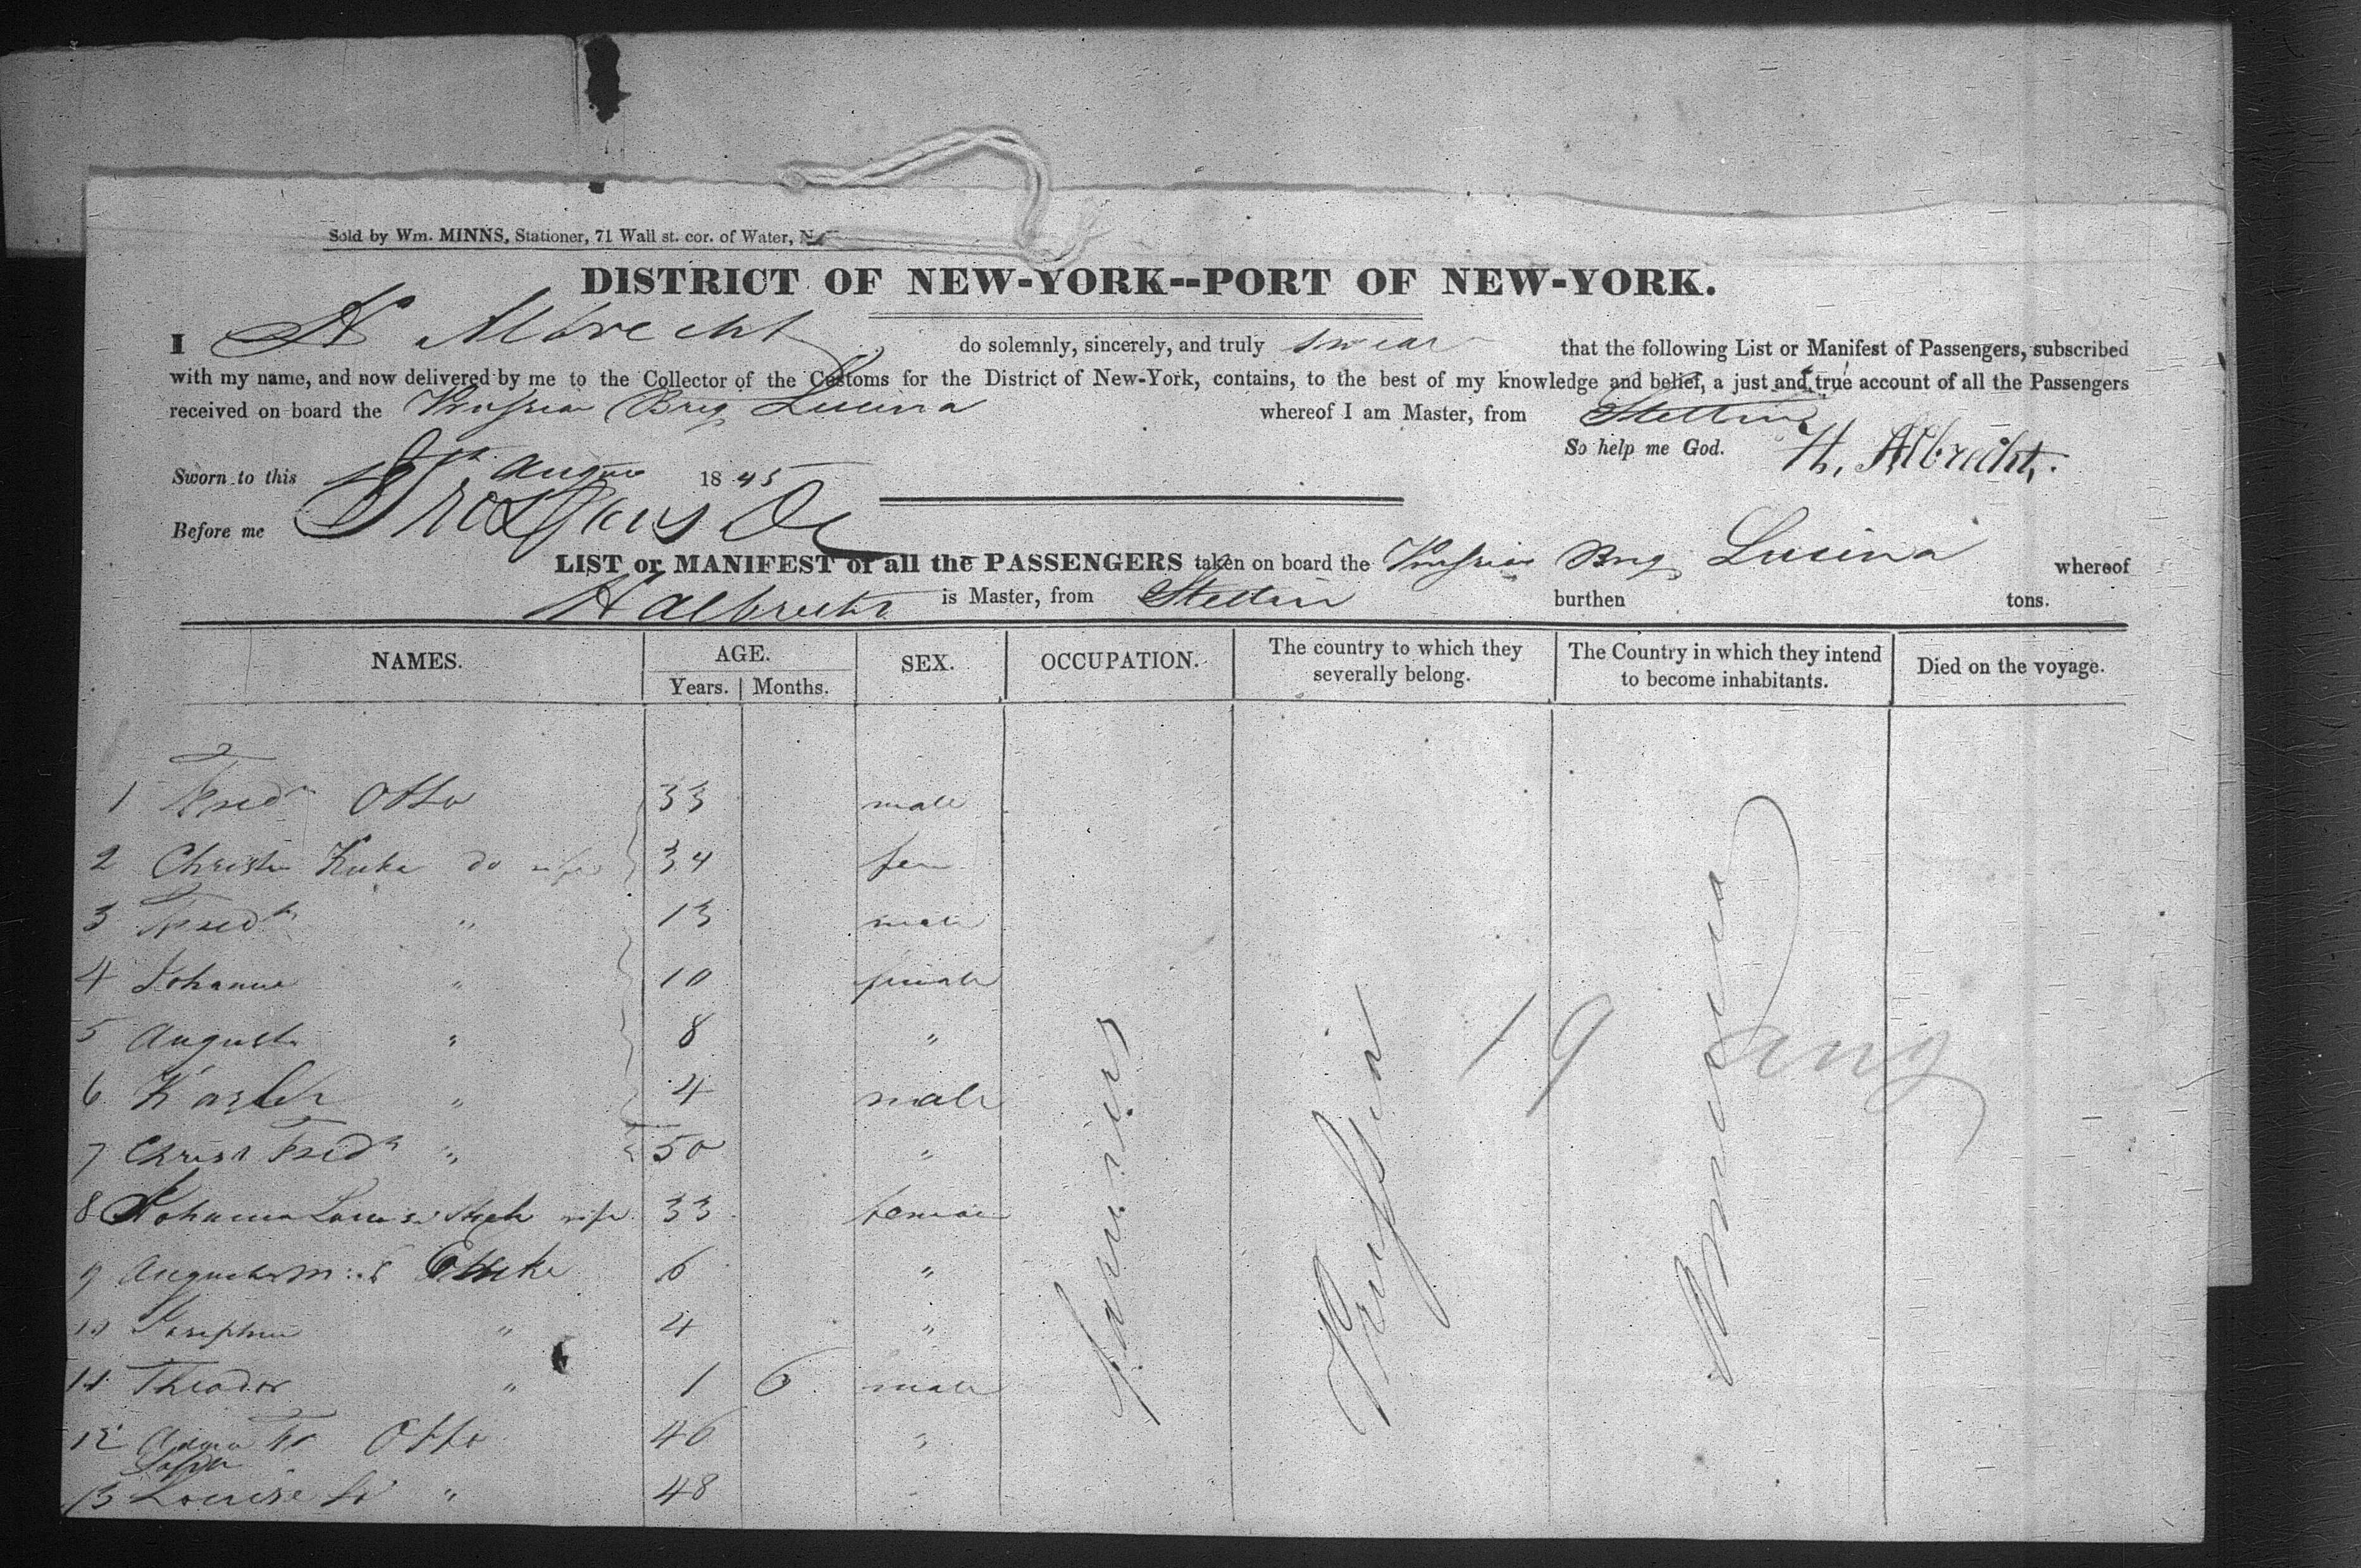 Sold by Wm. MINNS, Stationer, 71 Wall st. cor. of Water,
DISTRICT OF NEW-YORK--PORT OF NEW-YORK.
I H Albrecht do solemnly, sincerely, and truly swear that the following List or Manifest of Passengers, subscribed
with my name, and now delivered by me to the Collector of the Customs for the District of New-York, contains, to the best of my knowledge and belief, a just and true account of all the Passengers
received on board the Prussian Brig Lucina whereof I am Master, from Stettin
So help me God. H. Albrecht.
Sworn to this 1845
Before me
LIST or MANIFEST of all the PASSENGERS taken on board the Prussian Brig Lucina whereof
H Albrecht is Master, from Stettin burthen tons.
NAMES. AGE. SEX. OCCUPATION. The country to which they severally belong. The Country in which they intend to become inhabitants. Died on the voyage.
Years. Months.
1 Fredk Otto 33 male
2 Kuka do wife 34 fem
3 Fredk " 13 male
4 Johanne " 10 female
5 Auguste " 8 "
6 " 4 male
7 Christ Fredk " 50 "
8 Johanna Louise wife 33 female
9 6 "
10 Josephine " 4 "
11 Theodor " 1 6 male
12 Otto 46 "
13 Louise " 48
Farmers
Prussia
America
19 Aug